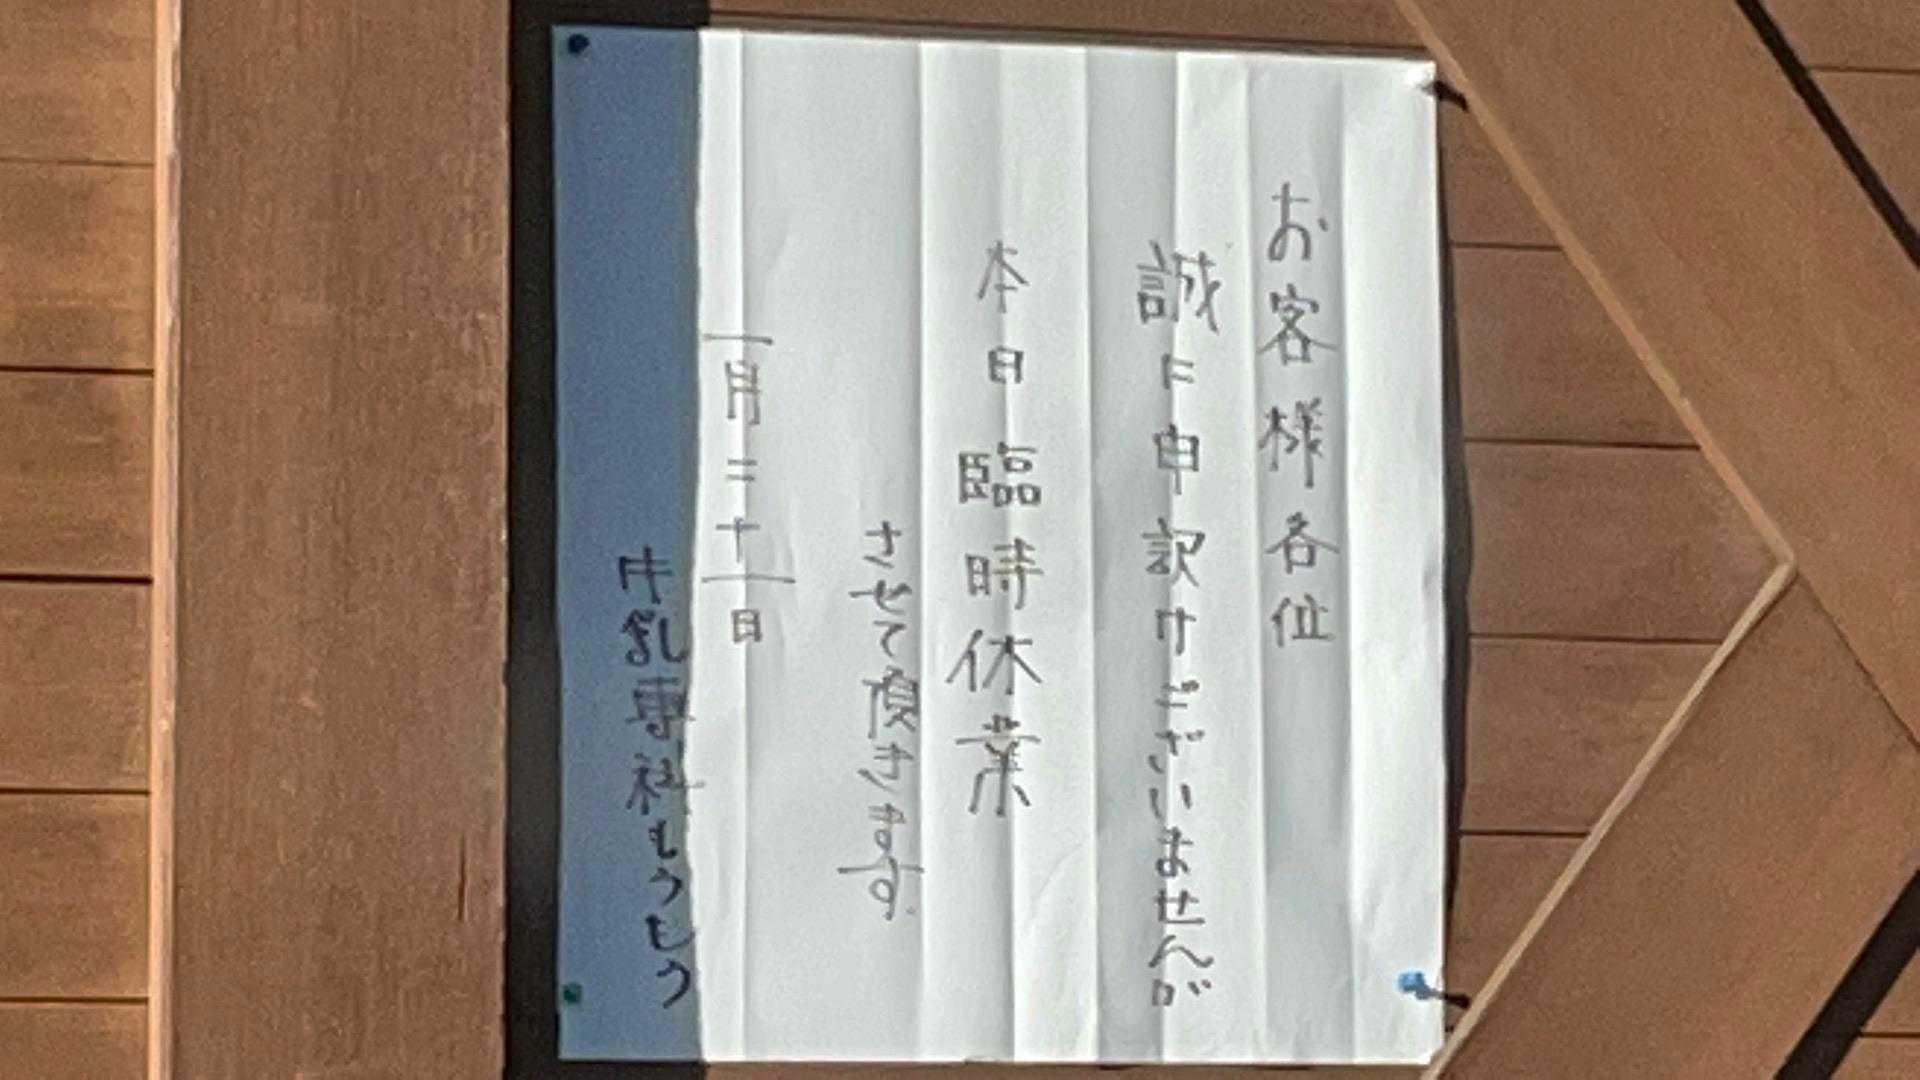 お客様各位
誠に申訳けございませんが
本日臨時休業
させて頂きます。
一月二十一日
牛乳専科もうもう